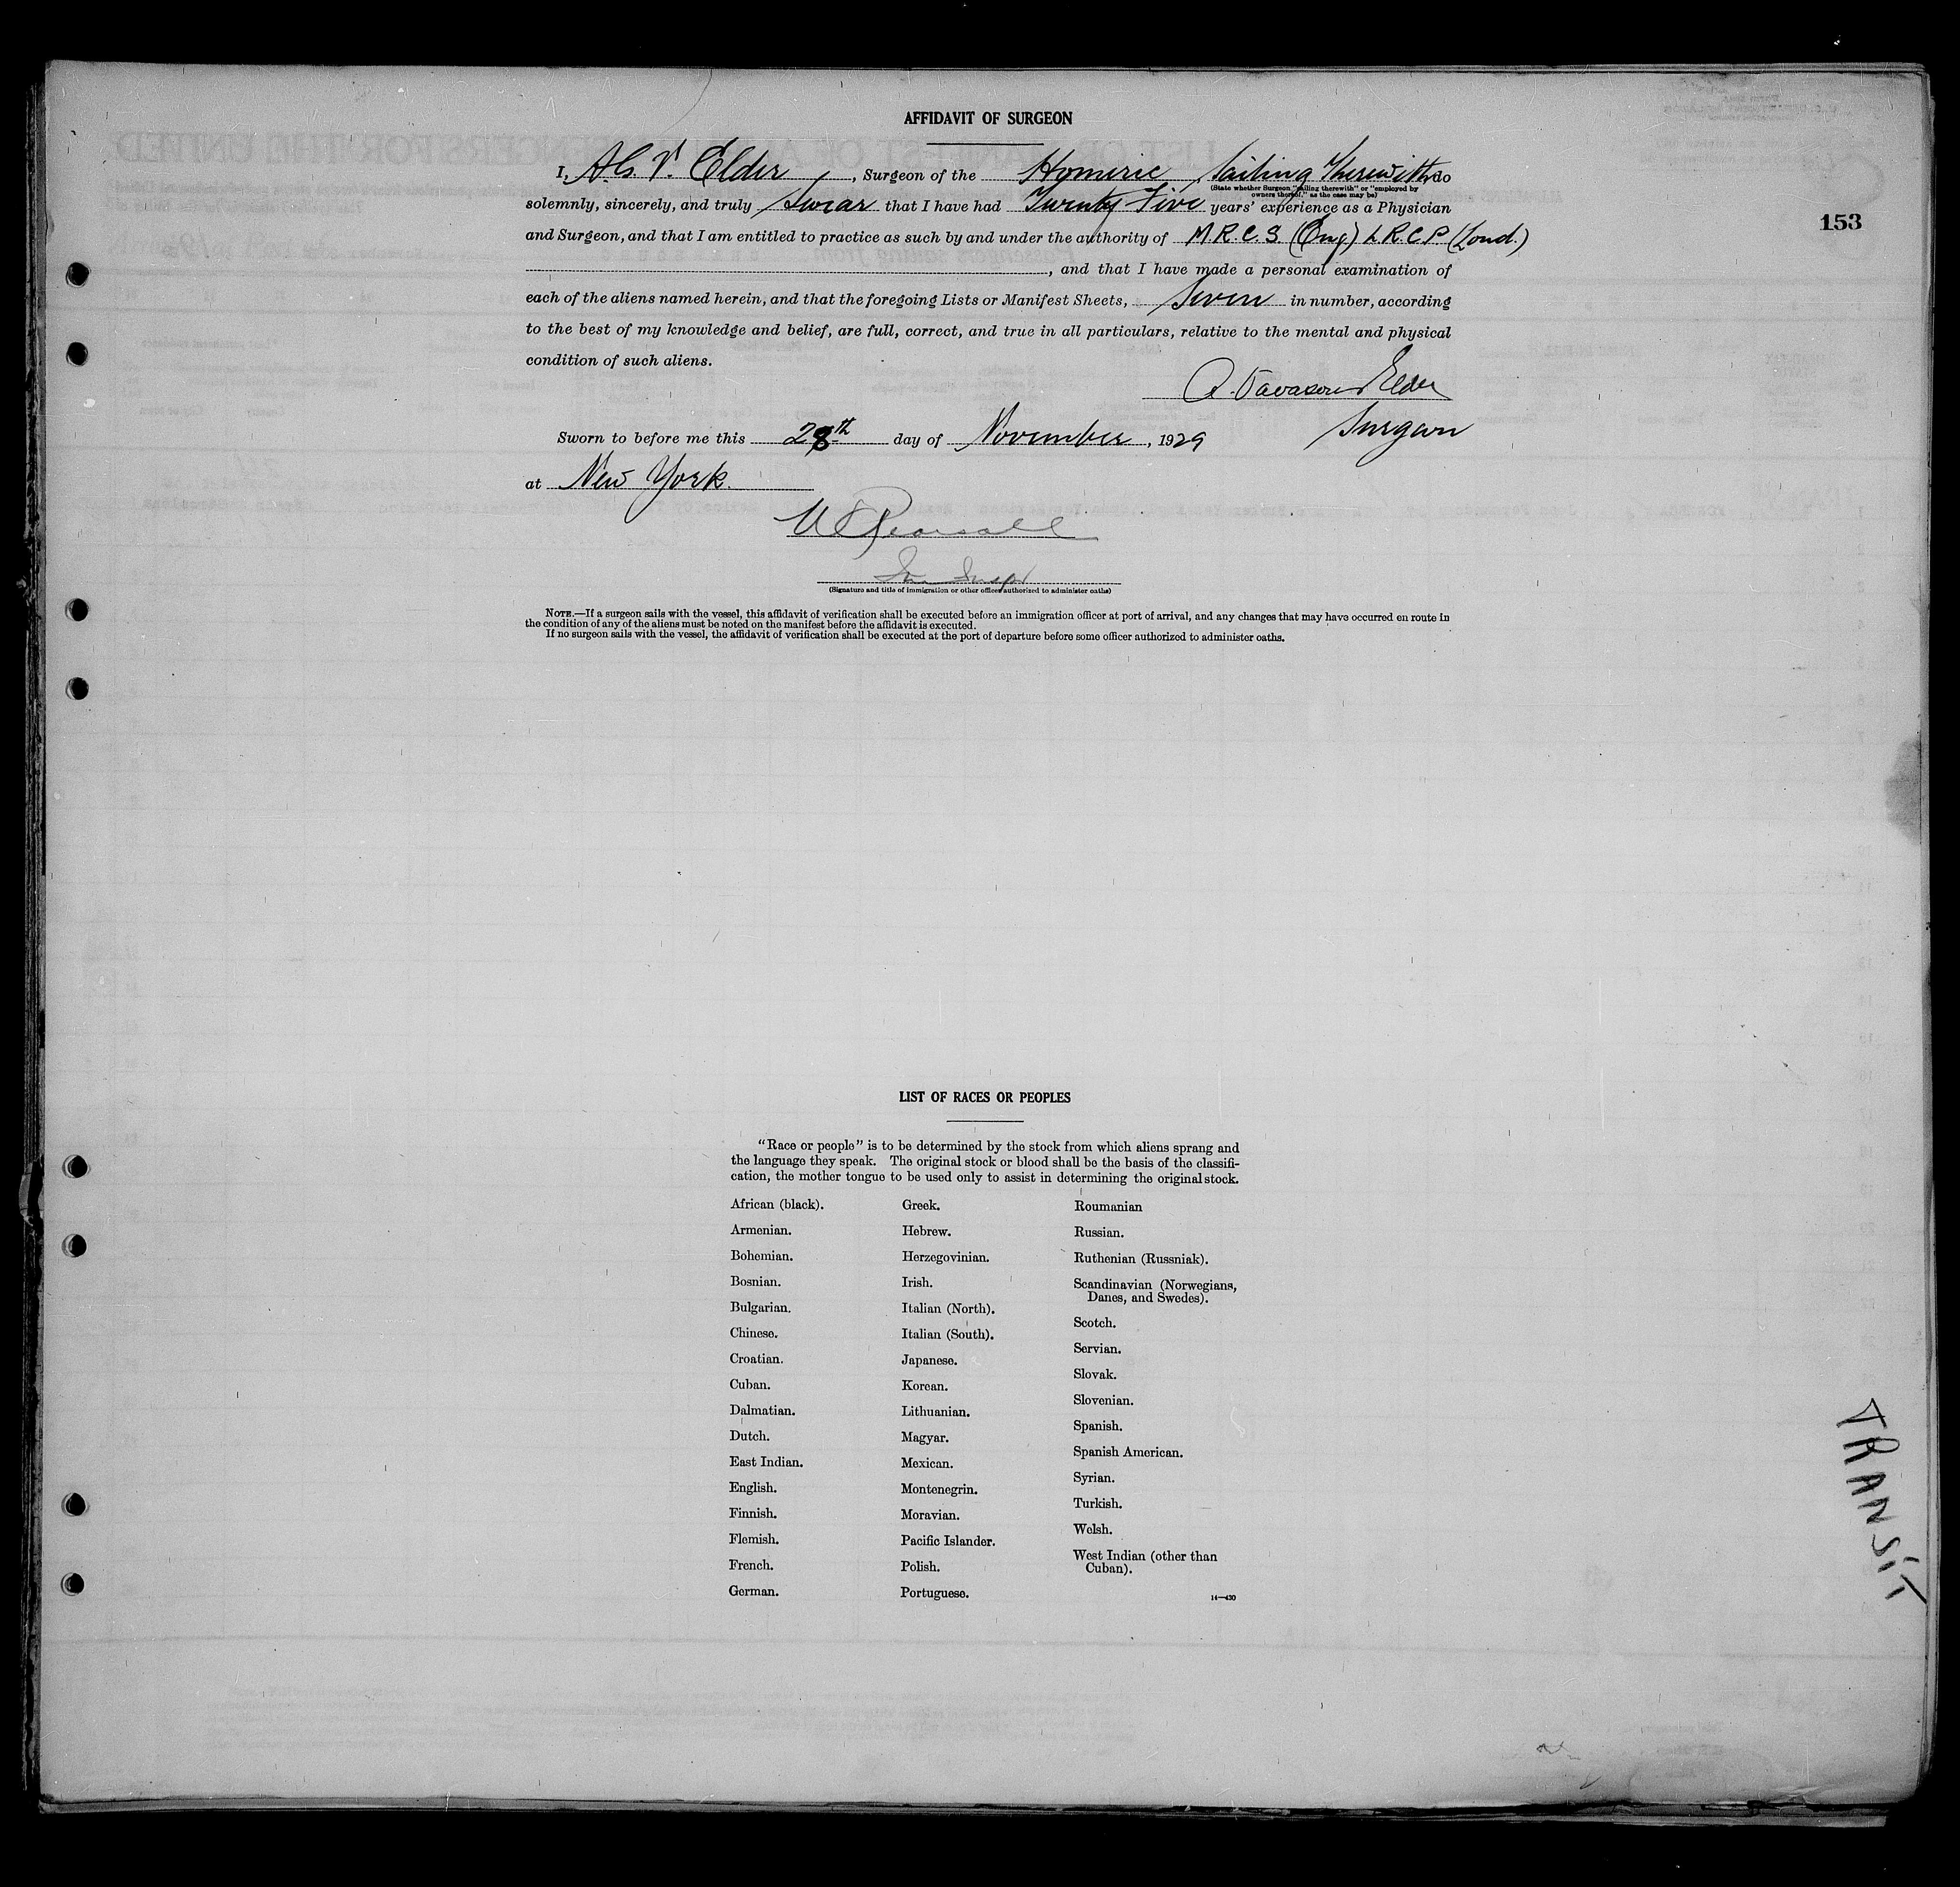 AFFIDAVIT OF SURGEON
I, A. G. V. Elder, Surgeon of the Homeric, Sailing Therewith, do
(State whether Surgeon "sailing therewith" or "employed by
owners thereof," as the case may be)
solemnly, sincerely, and truly Swear that I have had Twenty Five years' experience as a Physician
and Surgeon, and that I am entitled to practice as such by and under the authority of M.R.C.S (Eng) L.R.C.P (Lond.)
, and that I have made a personal examination of
each of the aliens named herein, and that the foregoing Lists or Manifest Sheets, Seven in number, according
to the best of my knowledge and belief, are full, correct, and true in all particulars, relative to the mental and physical
condition of such aliens.
A. Vavasour Elder
Surgeon
Sworn to before me this 28th day of November, 1929
at New York.
Pearsall
(Signature and title of immigration or other officer authorized to administer oaths)
NOTE.—If a surgeon sails with the vessel, this affidavit of verification shall be executed before an immigration officer at port of arrival, and any changes that may have occurred en route in
the condition of any of the aliens must be noted on the manifest before the affidavit is executed.
If no surgeon sails with the vessel, the affidavit of verification shall be executed at the port of departure before some officer authorized to administer oaths.
153
LIST OF RACES OR PEOPLES
"Race or people" is to be determined by the stock from which aliens sprang and
the language they speak. The original stock or blood shall be the basis of the classifi-
cation, the mother tongue to be used only to assist in determining the original stock.
African (black).
Armenian.
Bohemian.
Bosnian.
Bulgarian.
Chinese.
Croatian.
Cuban.
Dalmatian.
Dutch.
East Indian.
English.
Finnish.
Flemish.
French.
German.
Greek.
Hebrew.
Herzegovinian.
Irish.
Italian (North).
Italian (South).
Japanese.
Korean.
Lithuanian.
Magyar.
Mexican.
Montenegrin.
Moravian.
Pacific Islander.
Polish.
Portuguese.
Roumanian
Russian.
Ruthenian (Russniak).
Scandinavian (Norwegians,
Danes, and Swedes).
Scotch.
Servian.
Slovak.
Slovenian.
Spanish.
Spanish American.
Syrian.
Turkish.
Welsh.
West Indian (other than
Cuban).
14—430
TRANSIT